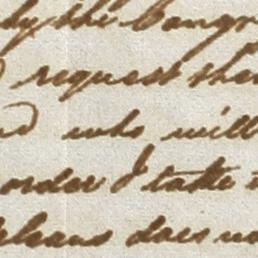 by the Congr
request that
who will
order I take
leans does no